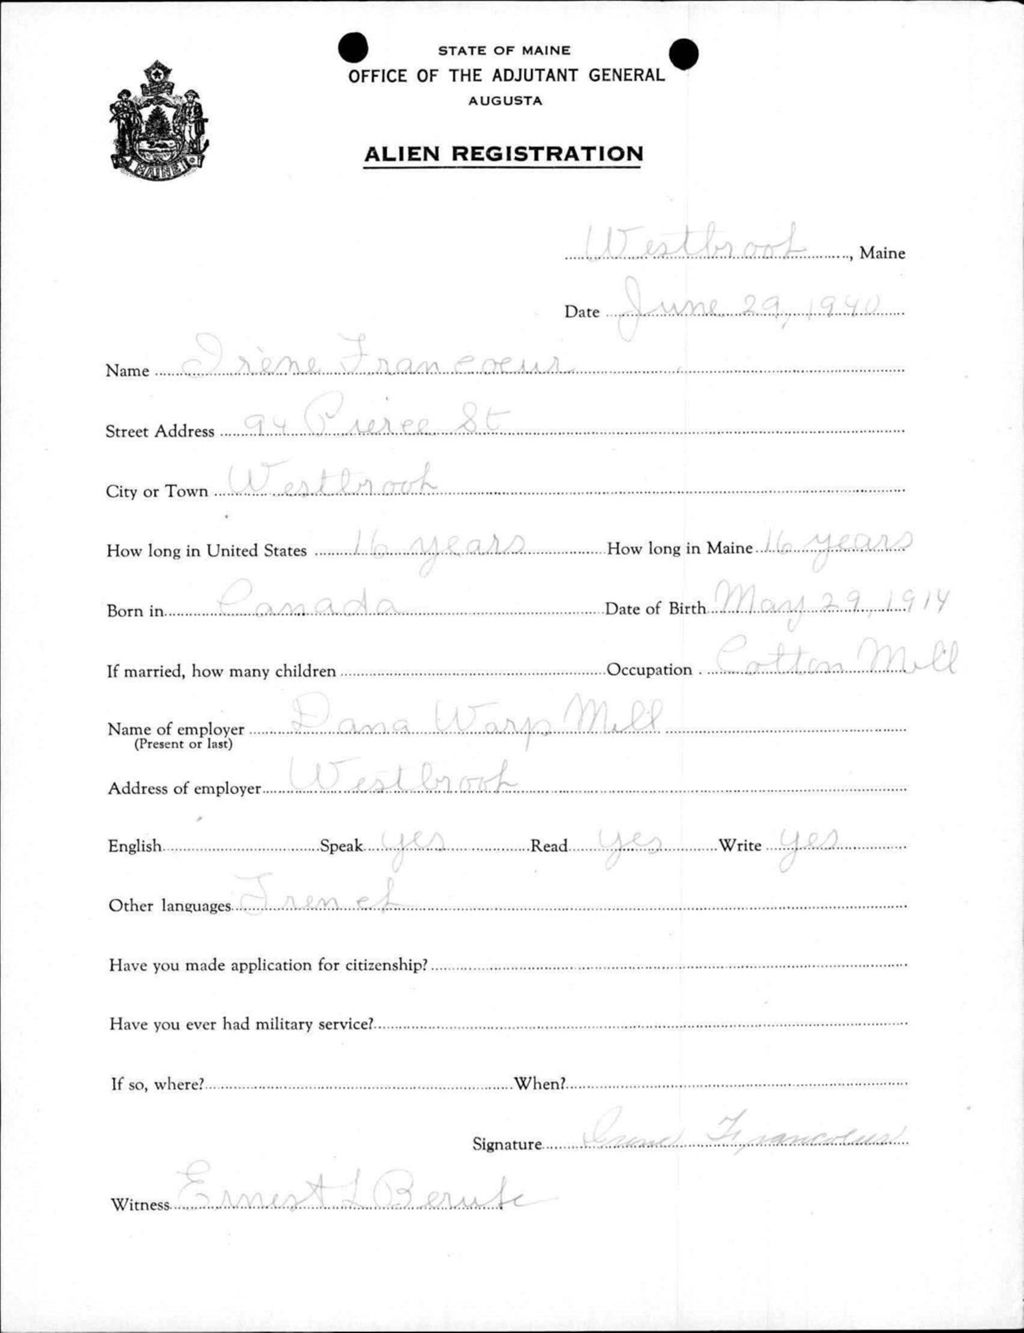 STATE OF MAINE
OFFICE OF THE ADJUTANT GENERAL
AUGUSTA
ALIEN REGISTRATION
MAINE
Westbrook, Maine
Date June 29, 1940
Name Irène Francoeur
Street Address 94 Pierce St
City or Town Westbrook
How long in United States 16 years How long in Maine 16 years
Born in Canada Date of Birth May 29, 1914
If married, how many children Occupation Cotton Mill
Name of employer Dana Warp Mill
(Present or last)
Address of employer Westbrook
English Speak yes Read yes Write yes
Other languages French
Have you made application for citizenship?
Have you ever had military service?
If so, where? When?
Signature Irene Francoeur
Witness Ernest L